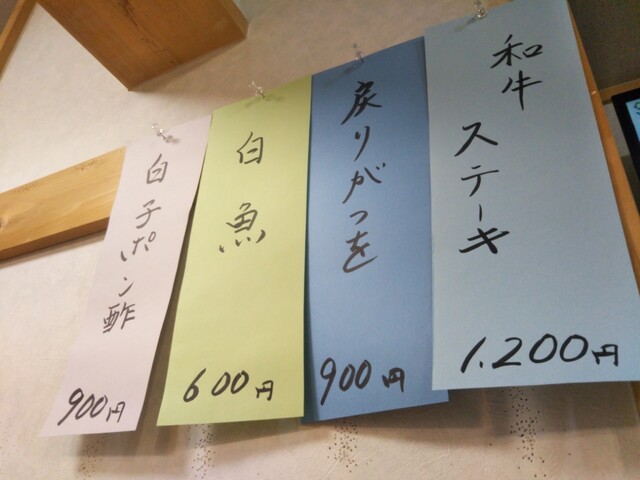 和牛ステーキ
1.200円
戻りがつを
900円
白魚
600円
白子ポン酢
900円